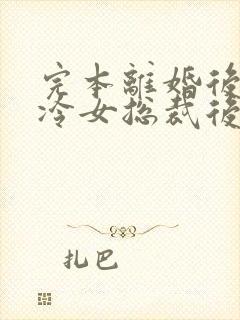 完本離婚後
冷女总裁後
扎巴